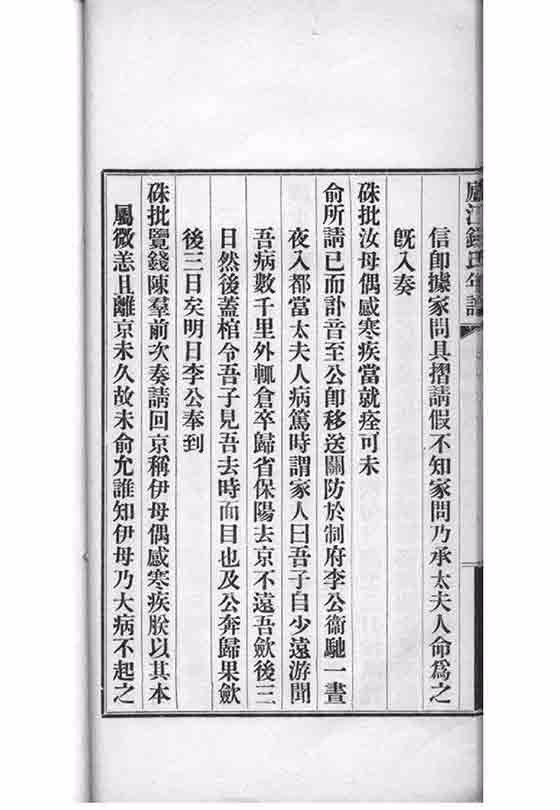 廬江錢氏年譜
信卽據家問具摺請假不知家問乃承太夫人命爲之
旣入奏
硃批汝母偶感寒疾當就痊可未
俞所請已而訃音至公卽移送關防於制府李公衞馳一晝
夜入都當太夫人病篤時謂家人曰吾子自少遠游聞
吾病數千里外輒倉卒歸省保陽去京不遠吾斂後三
日然後蓋棺令吾子見吾去時面目也及公奔歸果斂
後三日矣明日李公奉到
硃批覽錢陳羣前次奏請回京稱伊母偶感寒疾朕以其本
屬微恙且離京未久故未俞允誰知伊母乃大病不起之